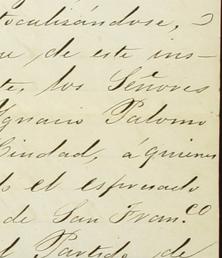 tocalizándose, 
de este ins-
te, los Señores
Ygnacio Palomi
Ciudad, á quienes
el espresado
de San Fran.co
Partido de